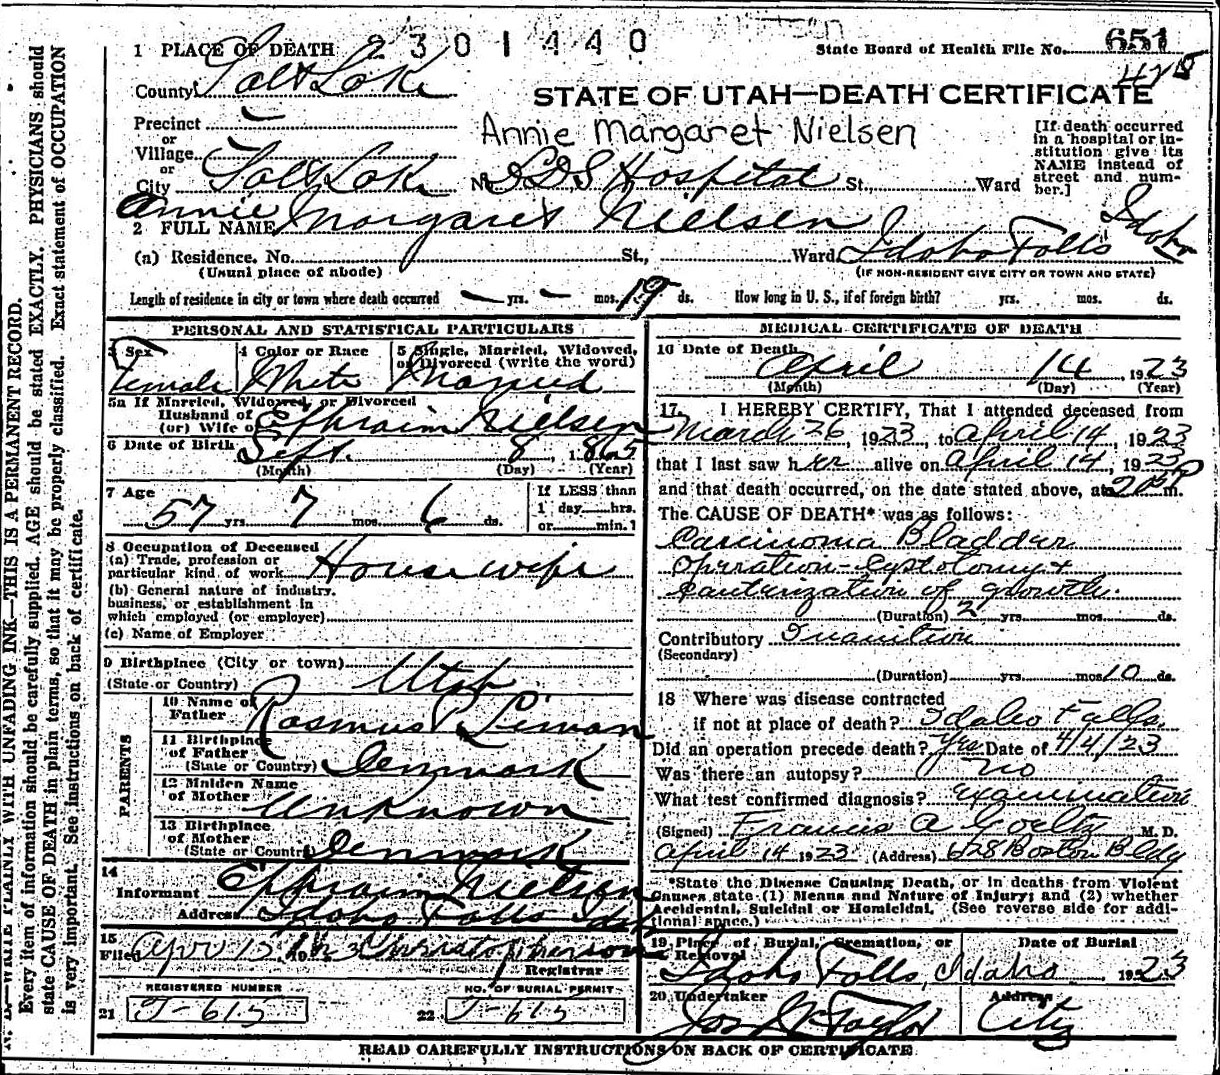 1 PLACE OF DEATH 2301440
State Board of Health File No. 651
County Salt Lake
STATE OF UTAH—DEATH CERTIFICATE
Precinct
or
Village
or
City Salt Lake No. L.D.S Hospital St., Ward
Annie Margaret Nielsen
[If death occurred
in a hospital or in-
stitution give its
NAME instead of
street and num-
ber.]
2 FULL NAME Annie Margaret Nielsen
(a) Residence. No. St., Ward Idaho Falls Idaho
(Usual place of abode) (IF NON-RESIDENT GIVE CITY OR TOWN AND STATE)
Length of residence in city or town where death occurred — yrs. — mos. 19 ds. How long in U. S., if of foreign birth? yrs. mos. ds.
PERSONAL AND STATISTICAL PARTICULARS
3 Sex 4 Color or Race 5 Single, Married, Widowed,
or Divorced (write the word)
Female White Married
5a If Married, Widowed, or Divorced
Husband of
(or) Wife of Ephraim Nielsen
6 Date of Birth Sept. 8, 1865
(Month) (Day) (Year)
7 Age 57 yrs. 7 mos. 6 ds.
If LESS than
1 day hrs.
or min.?
8 Occupation of Deceased
(a) Trade, profession or
particular kind of work Housewife
(b) General nature of industry,
business, or establishment in
which employed (or employer)
(c) Name of Employer
9 Birthplace (City or town)
(State or Country) Utah
PARENTS
10 Name of
Father Rasmus P.
11 Birthplace
of Father
(State or Country) Denmark
12 Maiden Name
of Mother Unknown
13 Birthplace
of Mother
(State or Country) Denmark
14
Informant Ephraim Nielsen
Address Idaho Falls Ida
15
Filed Apr 1923
Registrar
REGISTERED NUMBER NO. OF BURIAL PERMIT
21 J-615 22 J-615
MEDICAL CERTIFICATE OF DEATH
16 Date of Death April 14 1923
(Month) (Day) (Year)
17. I HEREBY CERTIFY, That I attended deceased from
March 26, 1923, to April 14, 1923
that I last saw her alive on April 14, 1923
and that death occurred, on the date stated above, at m.
The CAUSE OF DEATH* was as follows:
Carcinoma Bladder
Operation-Cystotomy +
cauterization of growth.
(Duration) 2 yrs. mos. ds.
Contributory Inanition
(Secondary)
(Duration) yrs. mos. 10 ds.
18 Where was disease contracted
if not at place of death? Idaho Falls.
Did an operation precede death? Yes Date of 4/4/23
Was there an autopsy? no
What test confirmed diagnosis? examination
(Signed) Francis A Goeltz M. D.
April 14 1923 (Address) 628 Boston Bldg
*State the Disease Causing Death, or in deaths from Violent
Causes state (1) Means and Nature of Injury; and (2) whether
Accidental, Suicidal or Homicidal. (See reverse side for addi-
tional space.)
19 Place of Burial, Cremation, or Date of Burial
Removal
Idaho Falls, Idaho 1923
20 Undertaker Address
Jos Wm Taylor City
READ CAREFULLY INSTRUCTIONS ON BACK OF CERTIFICATE
WRITE PLAINLY WITH UNFADING INK—THIS IS A PERMANENT RECORD.
Every item of information should be carefully supplied. AGE should be stated EXACTLY. PHYSICIANS should
state CAUSE OF DEATH in plain terms, so that it may be properly classified. Exact statement of OCCUPATION
is very important. See instructions on back of certificate.